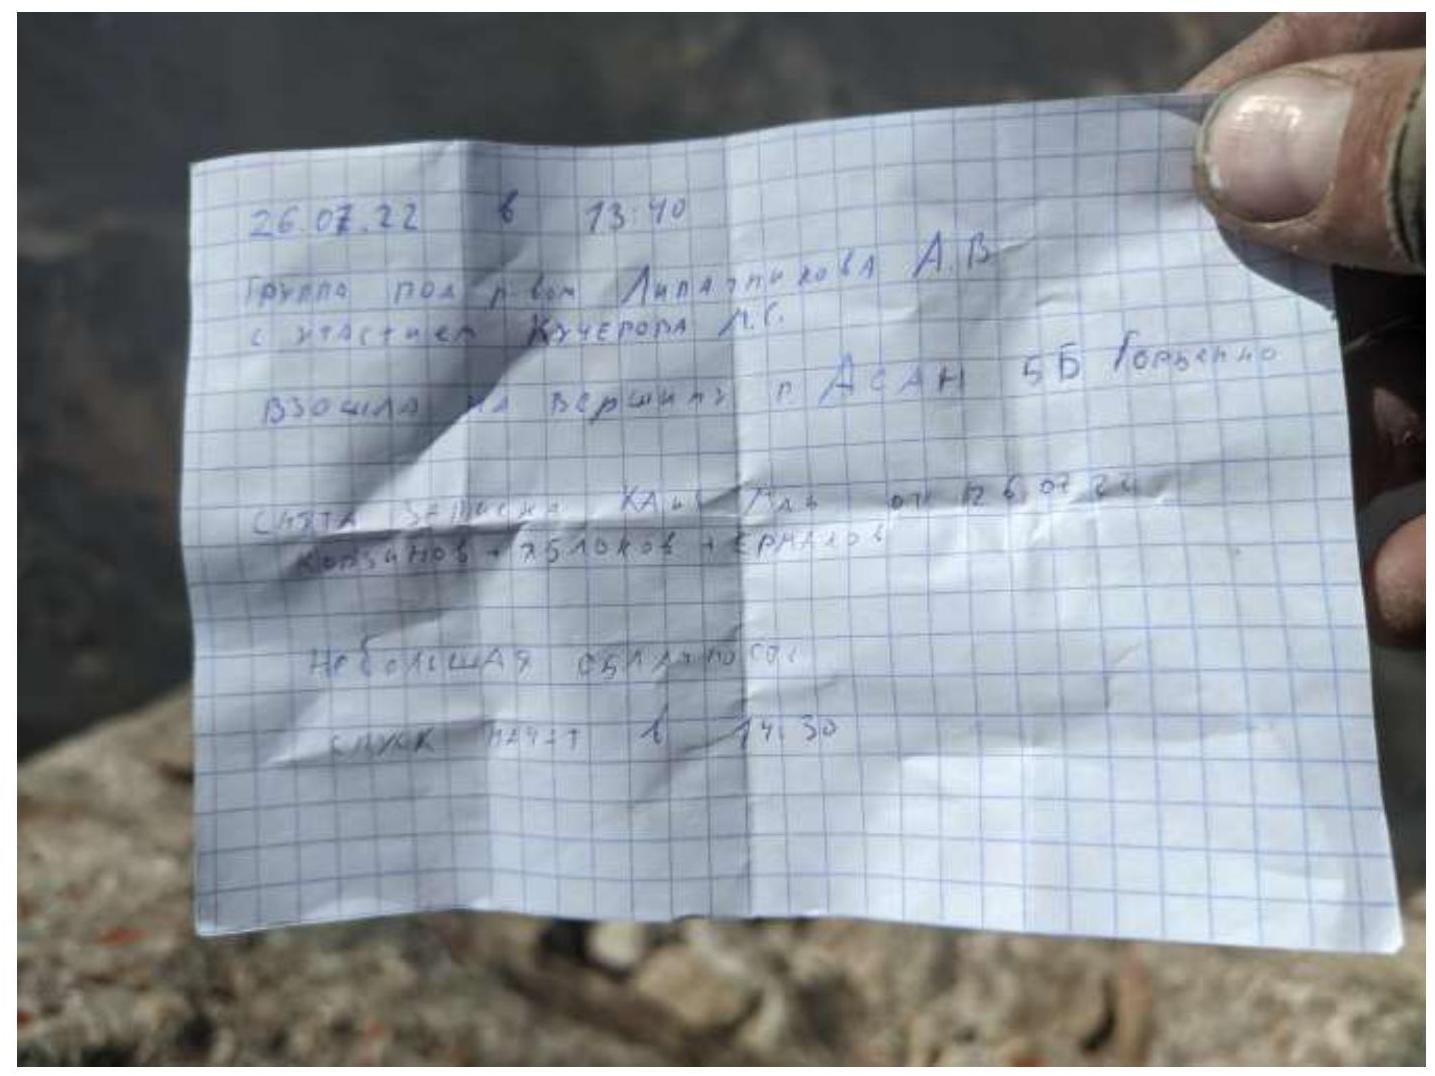 26.07.22 в 13:40
Группа под р-вом Липатникова А.В
с участием Кучерова М.С.
взошла на вершину п АСАН 5Б Горбенко
снята записка от 26.07.22
+ Яблоков + Ермаков
Небольшая облачность
спуск начат в 14:30